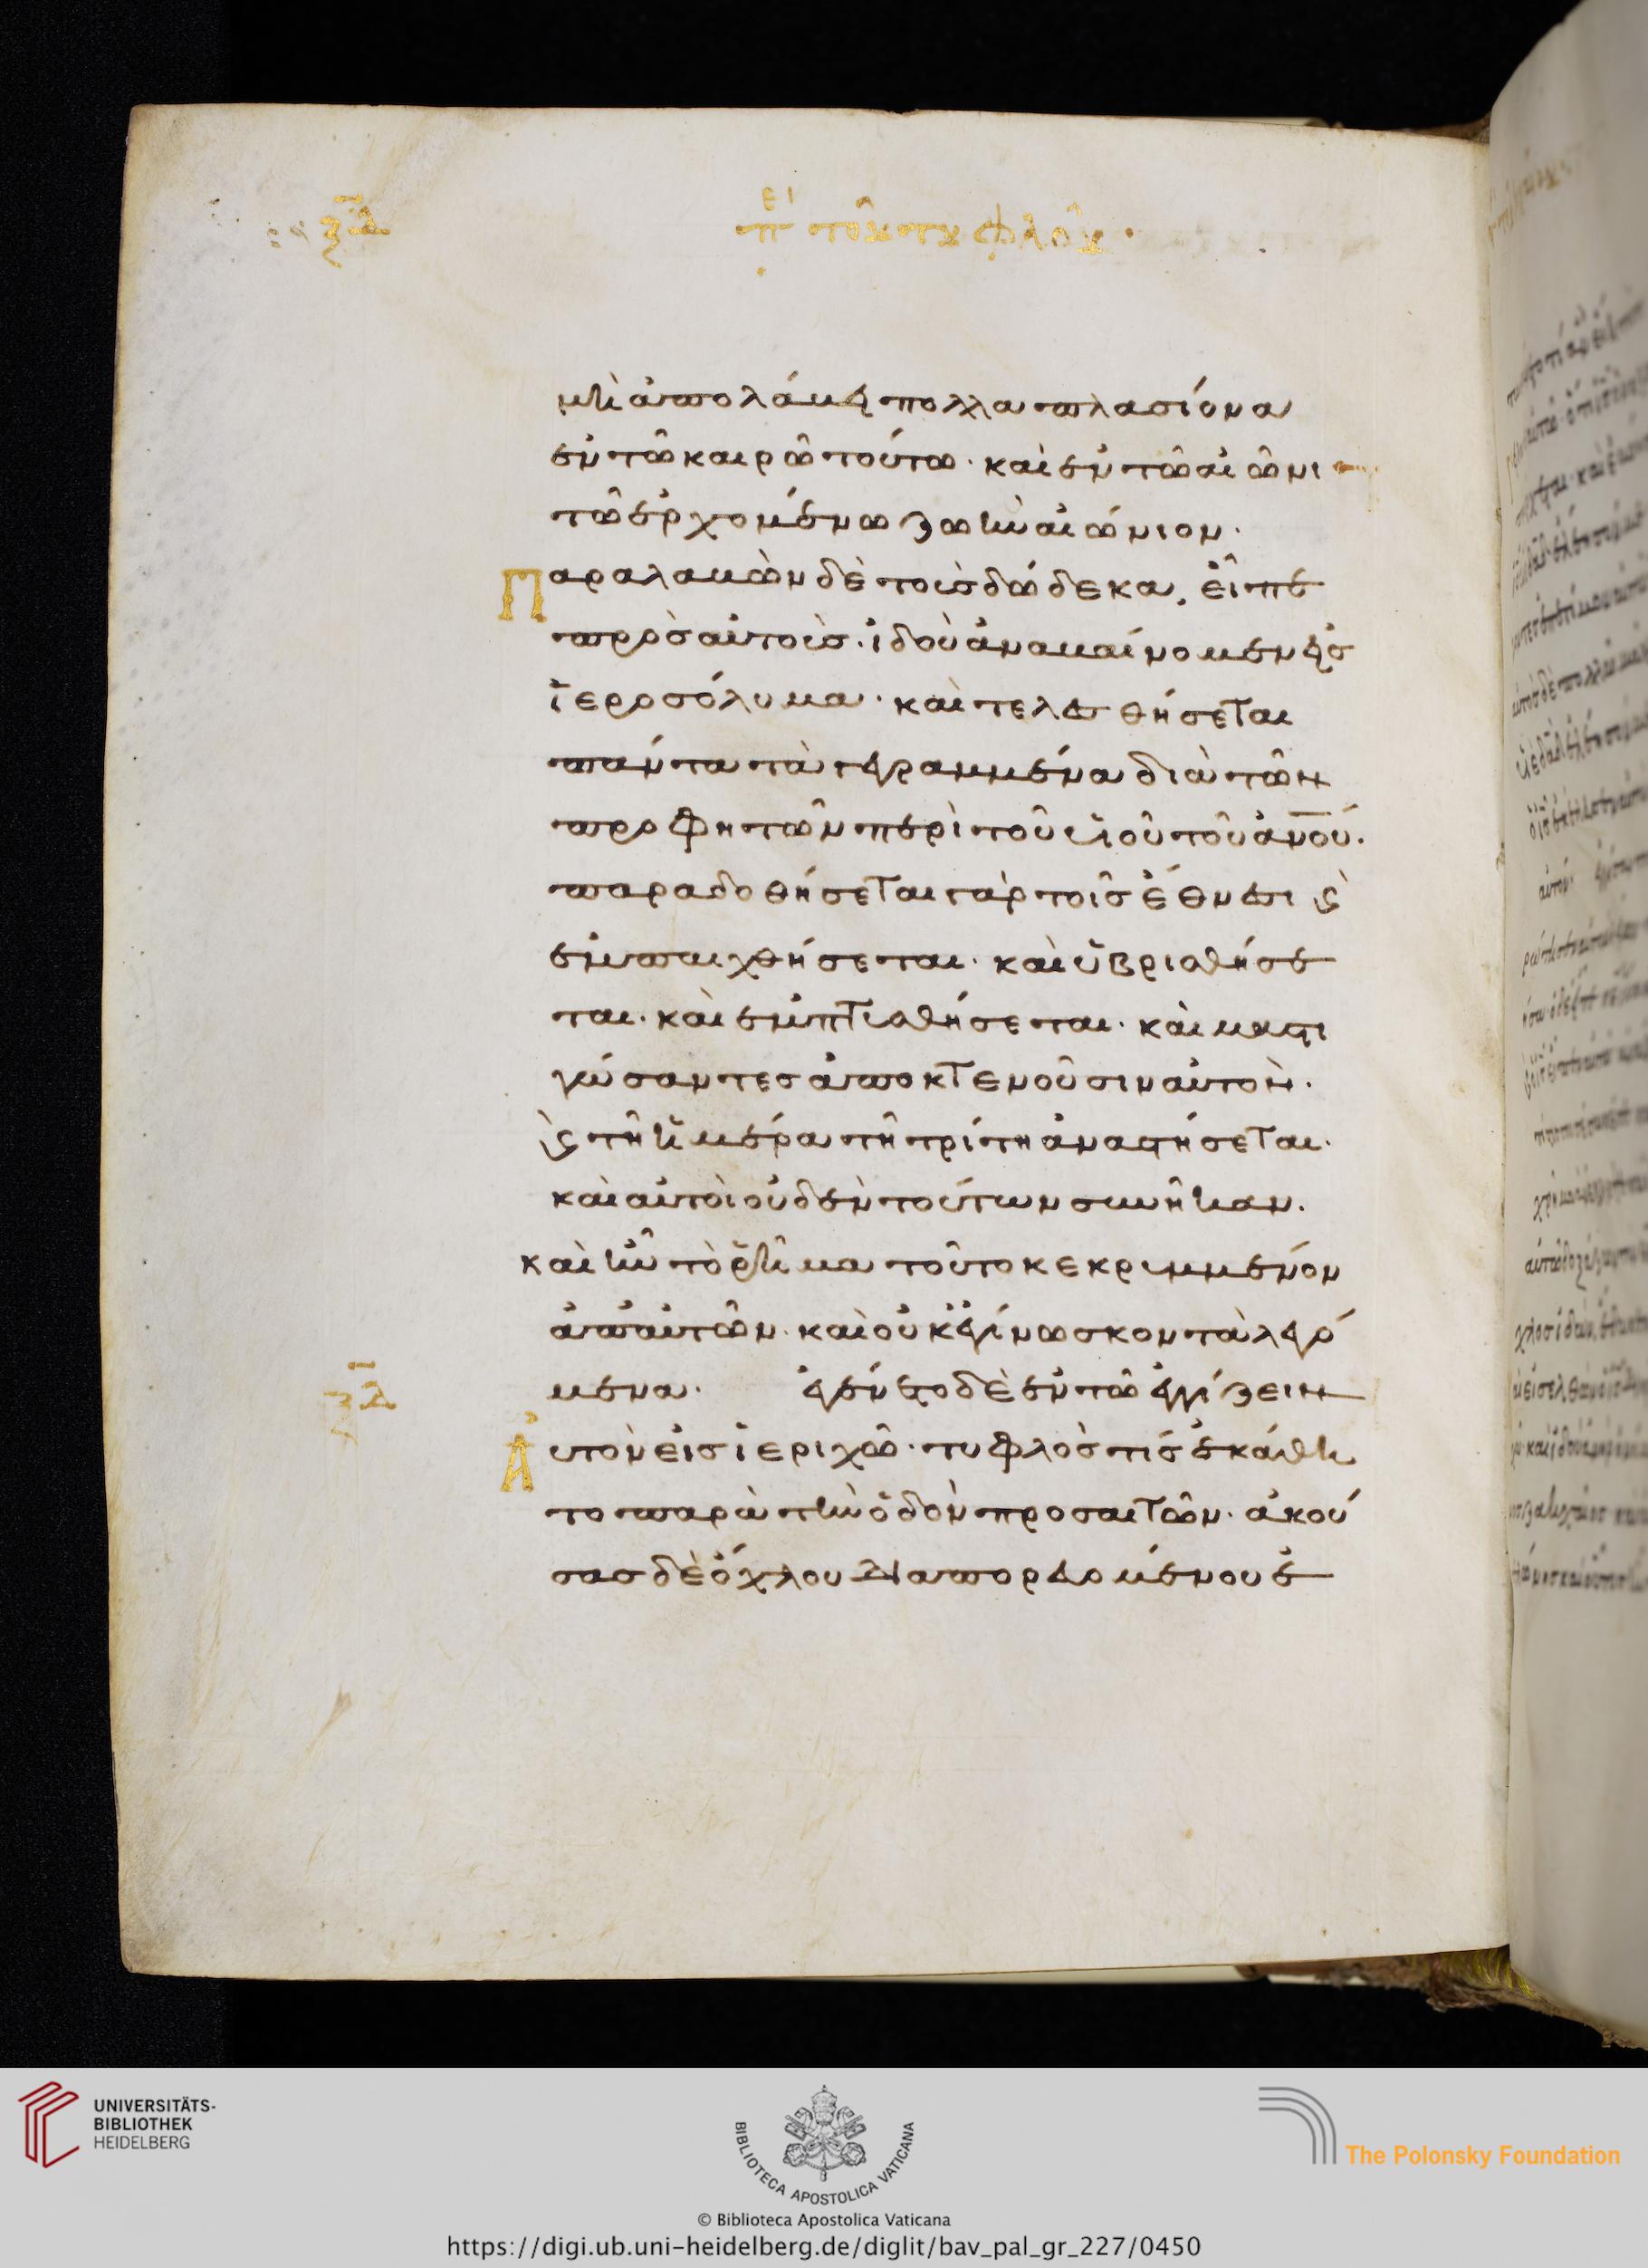 ξδ πει τοῦ τυφλοῦ·
μὴ ἀπολάβῃ πολλαπλασίονα
ἐν τῶ καιρῶ τούτω· καὶ ἐν τῶ αἰῶνι
τῶ ἐρχομένω ζωὴν αἰώνιον·
Παραλαβὼν δὲ τοὺς δώδεκα, εἶπε
πρὸς αὐτούς· ἰδοὺ ἀναβαίνομεν εἰς
ἱεροσόλυμα· καὶ τελεσθήσεται
πάντα τὰ γεγραμμένα διὰ τῶν
προφητῶν περὶ τοῦ υἱοῦ τοῦ ἀνου·
παραδοθήσεται γὰρ τοῖς ἔθνεσι ϗ
ἐμπαιχθήσεται· καὶ ὑβρισθήσε
ται· καὶ ἐμπτυσθήσεται· καὶ μαστι
γώσαντες ἀποκτενοῦσιν αὐτόν·
ϗ τῆ ἡμέρα τῆ τρίτη ἀναστήσεται·
καὶ αὐτοὶ οὐδὲν τούτων συνῆκαν·
καὶ ἦν τὸ ῥῆμα τοῦτο κεκρυμμένον
ἀπ' αὐτῶν· καὶ οὐκ ἐγίνωσκον τὰ λεγό
μενα· ἐγένετο δὲ ἐν τῶ ἐγγίζειν
ξδ
Αὐτὸν εἰς ἱεριχῶ· τυφλός τις ἐκάθη
το παρὰ τὴν ὁδὸν προσαιτῶν· ἀκού
σας δὲ ὄχλου διαπορευομένου ἐ
UNIVERSITÄTS-
BIBLIOTHEK
HEIDELBERG
BIBLIOTECA APOSTOLICA VATICANA
The Polonsky Foundation
© Biblioteca Apostolica Vaticana
https://digi.ub.uni-heidelberg.de/diglit/bav_pal_gr_227/0450